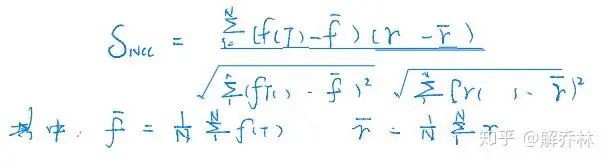 S_NCC = \frac{\sum_{i=}^{N} (f(T) - \bar{f}) (r - \bar{r})}{\sqrt{\sum_{1}^{N} (f(T) - \bar{f})^2} \sqrt{\sum_{1}^{N} [r( ) - \bar{r})^2}}
其中: \bar{f} = \frac{1}{N} \sum_{1}^{N} f(T) \bar{r} = \frac{1}{N} \sum_{1}^{N} r
知乎 @解乔林